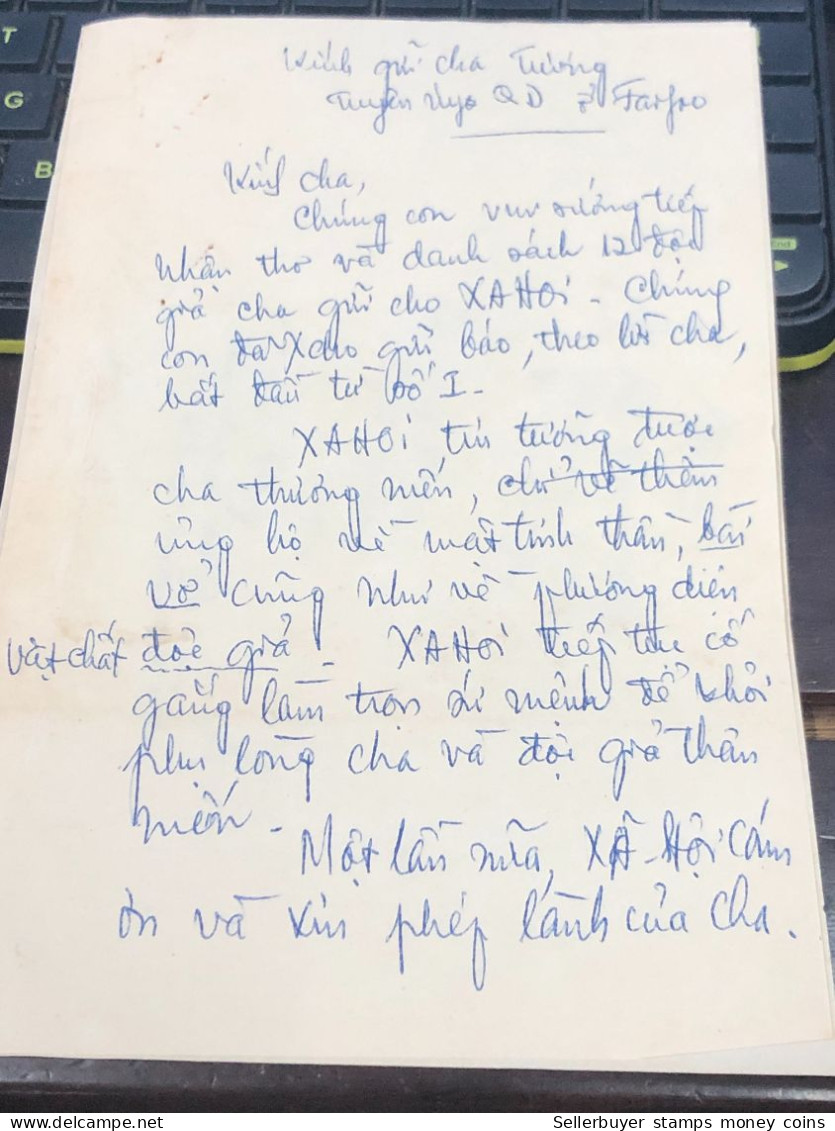 Kính gửi cha Tương
Tuyên úy QD ở Farfro
Kính cha,
Chúng con vui sướng tiếp
nhận thơ và danh sách 12 độc
giả cha gửi cho XAHOI - Chúng
con đã cho gửi báo, theo lời cha,
bắt đầu từ số I -
XAHOI tin tưởng được
cha thương mến, chỉ về thêm
ủng hộ về mặt tinh thần, bài
vở cũng như về phương diện
vật chất độc giả. XAHOI tiếp tục cố
gắng làm tròn sứ mệnh để khỏi
phụ lòng cha và độc giả thân
mến -
Một lần nữa, XÃ-Hội cám
ơn và xin phép lành của cha.
T
G
B
End
Sellerbuyer stamps money coins